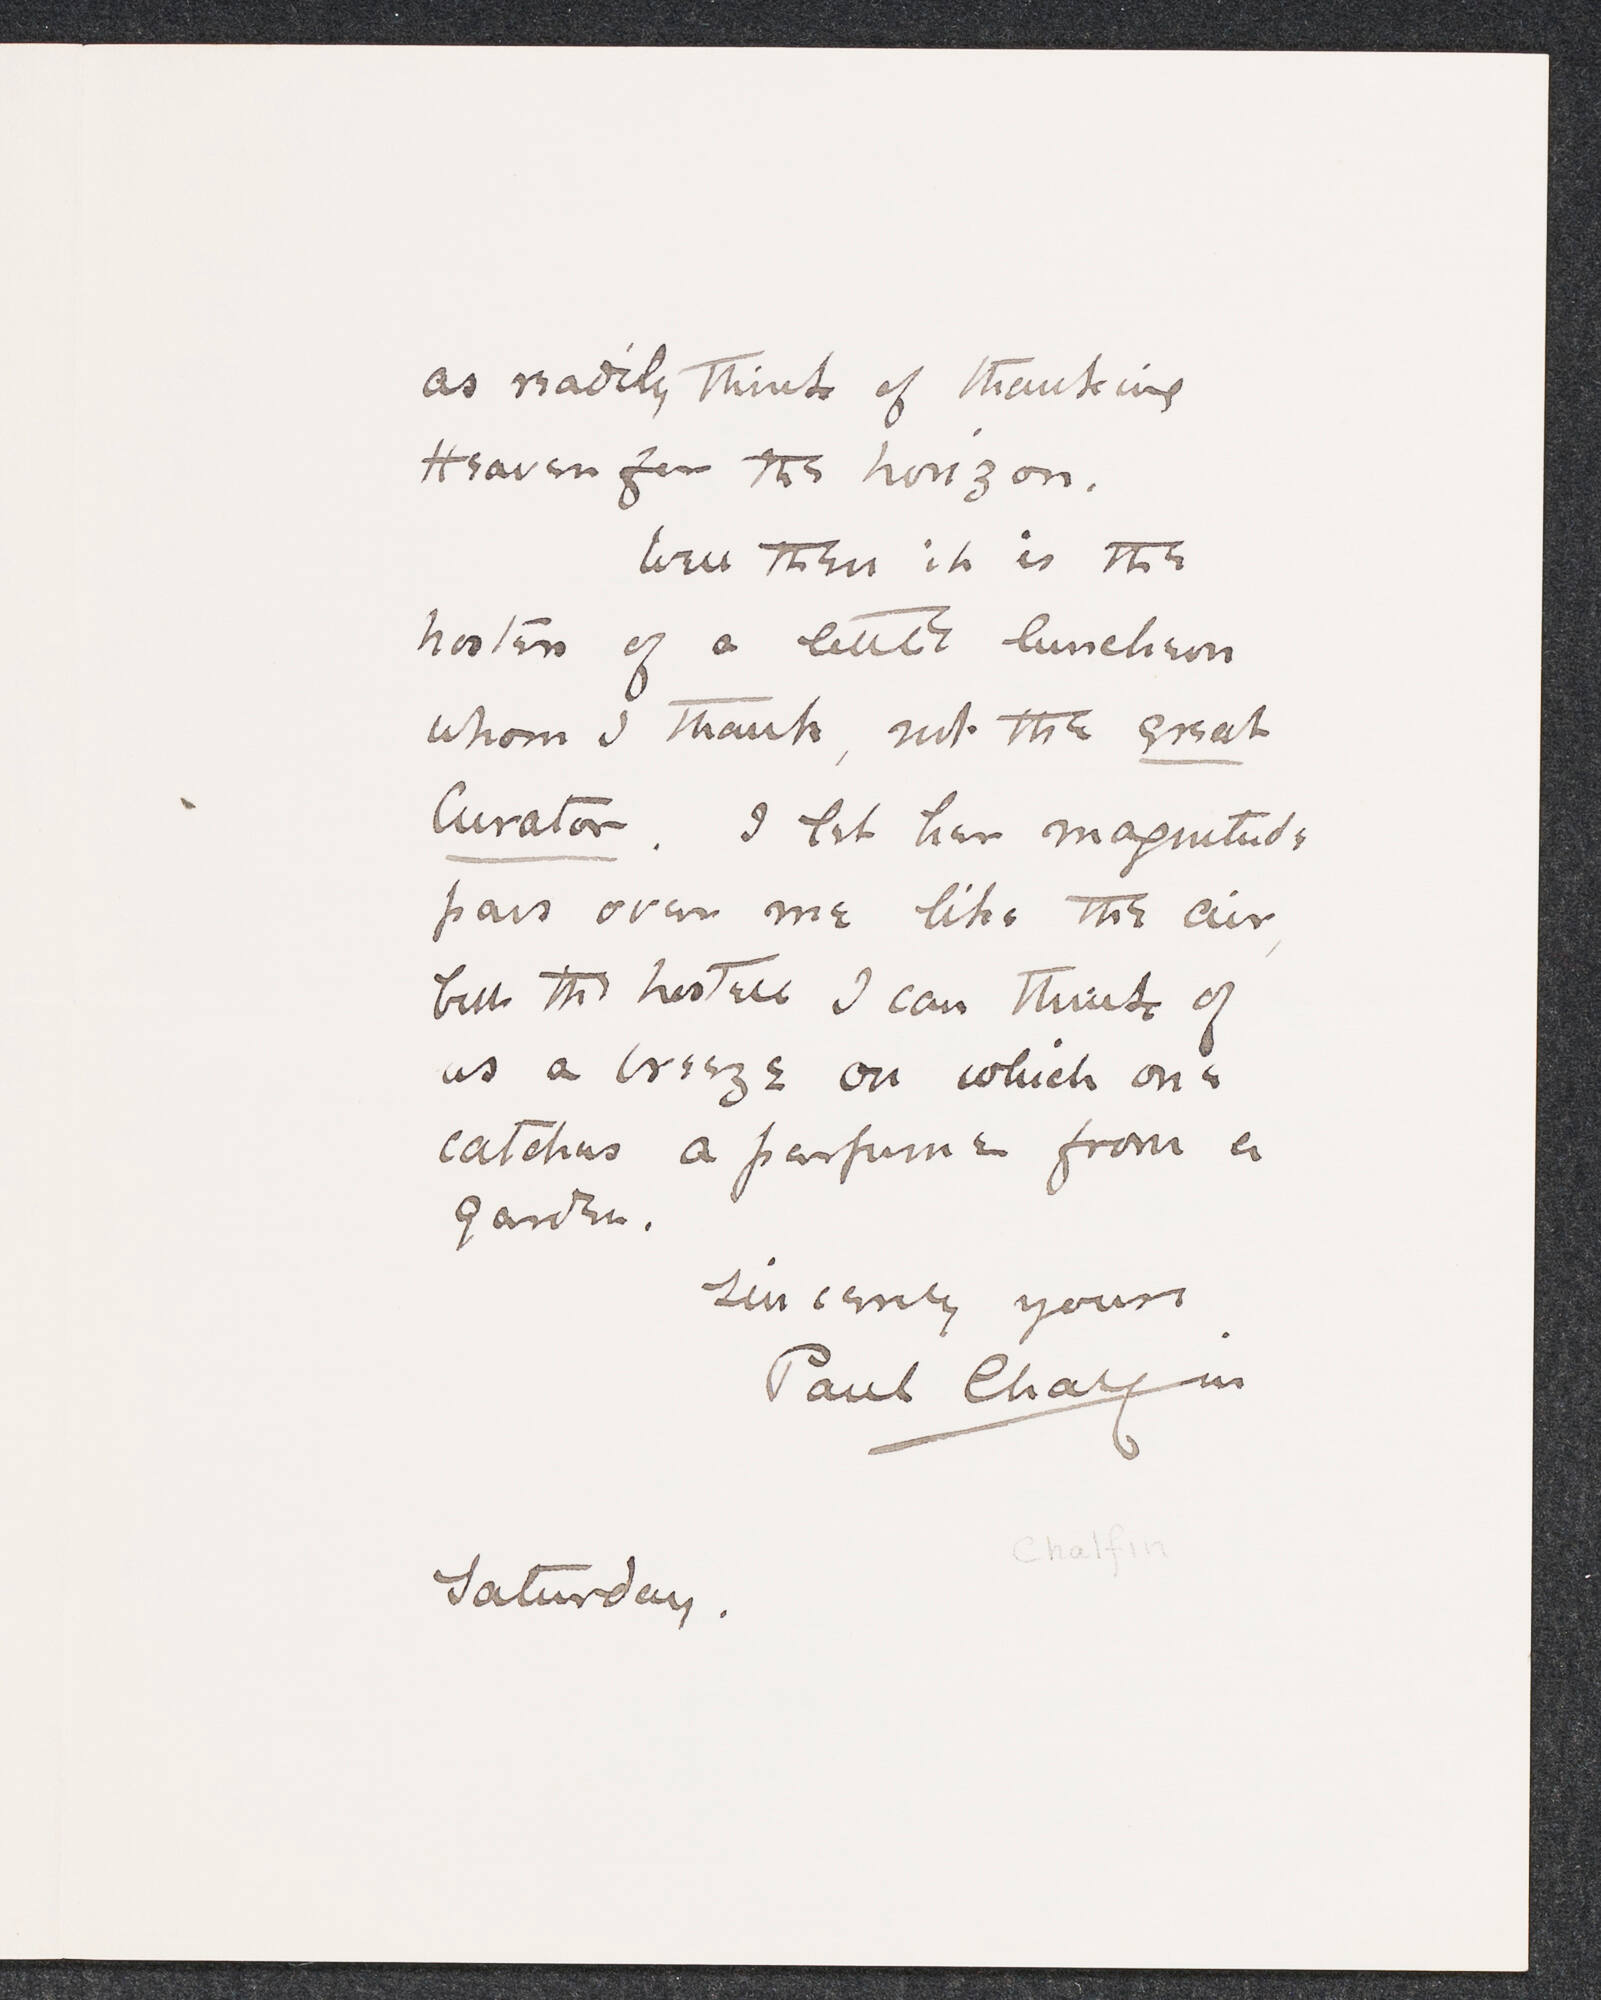 as readily think of thanking
Heaven for the horizon.
Well then it is the
hostess of a little luncheon
whom I thank, not the great
Curator. I let her magnitude
pass over me like the air,
but the hostess I can think of
as a breeze on which one
catches a perfume from a
garden.
Sincerely yours
Paul Chalfin
Chalfin
Saturday.